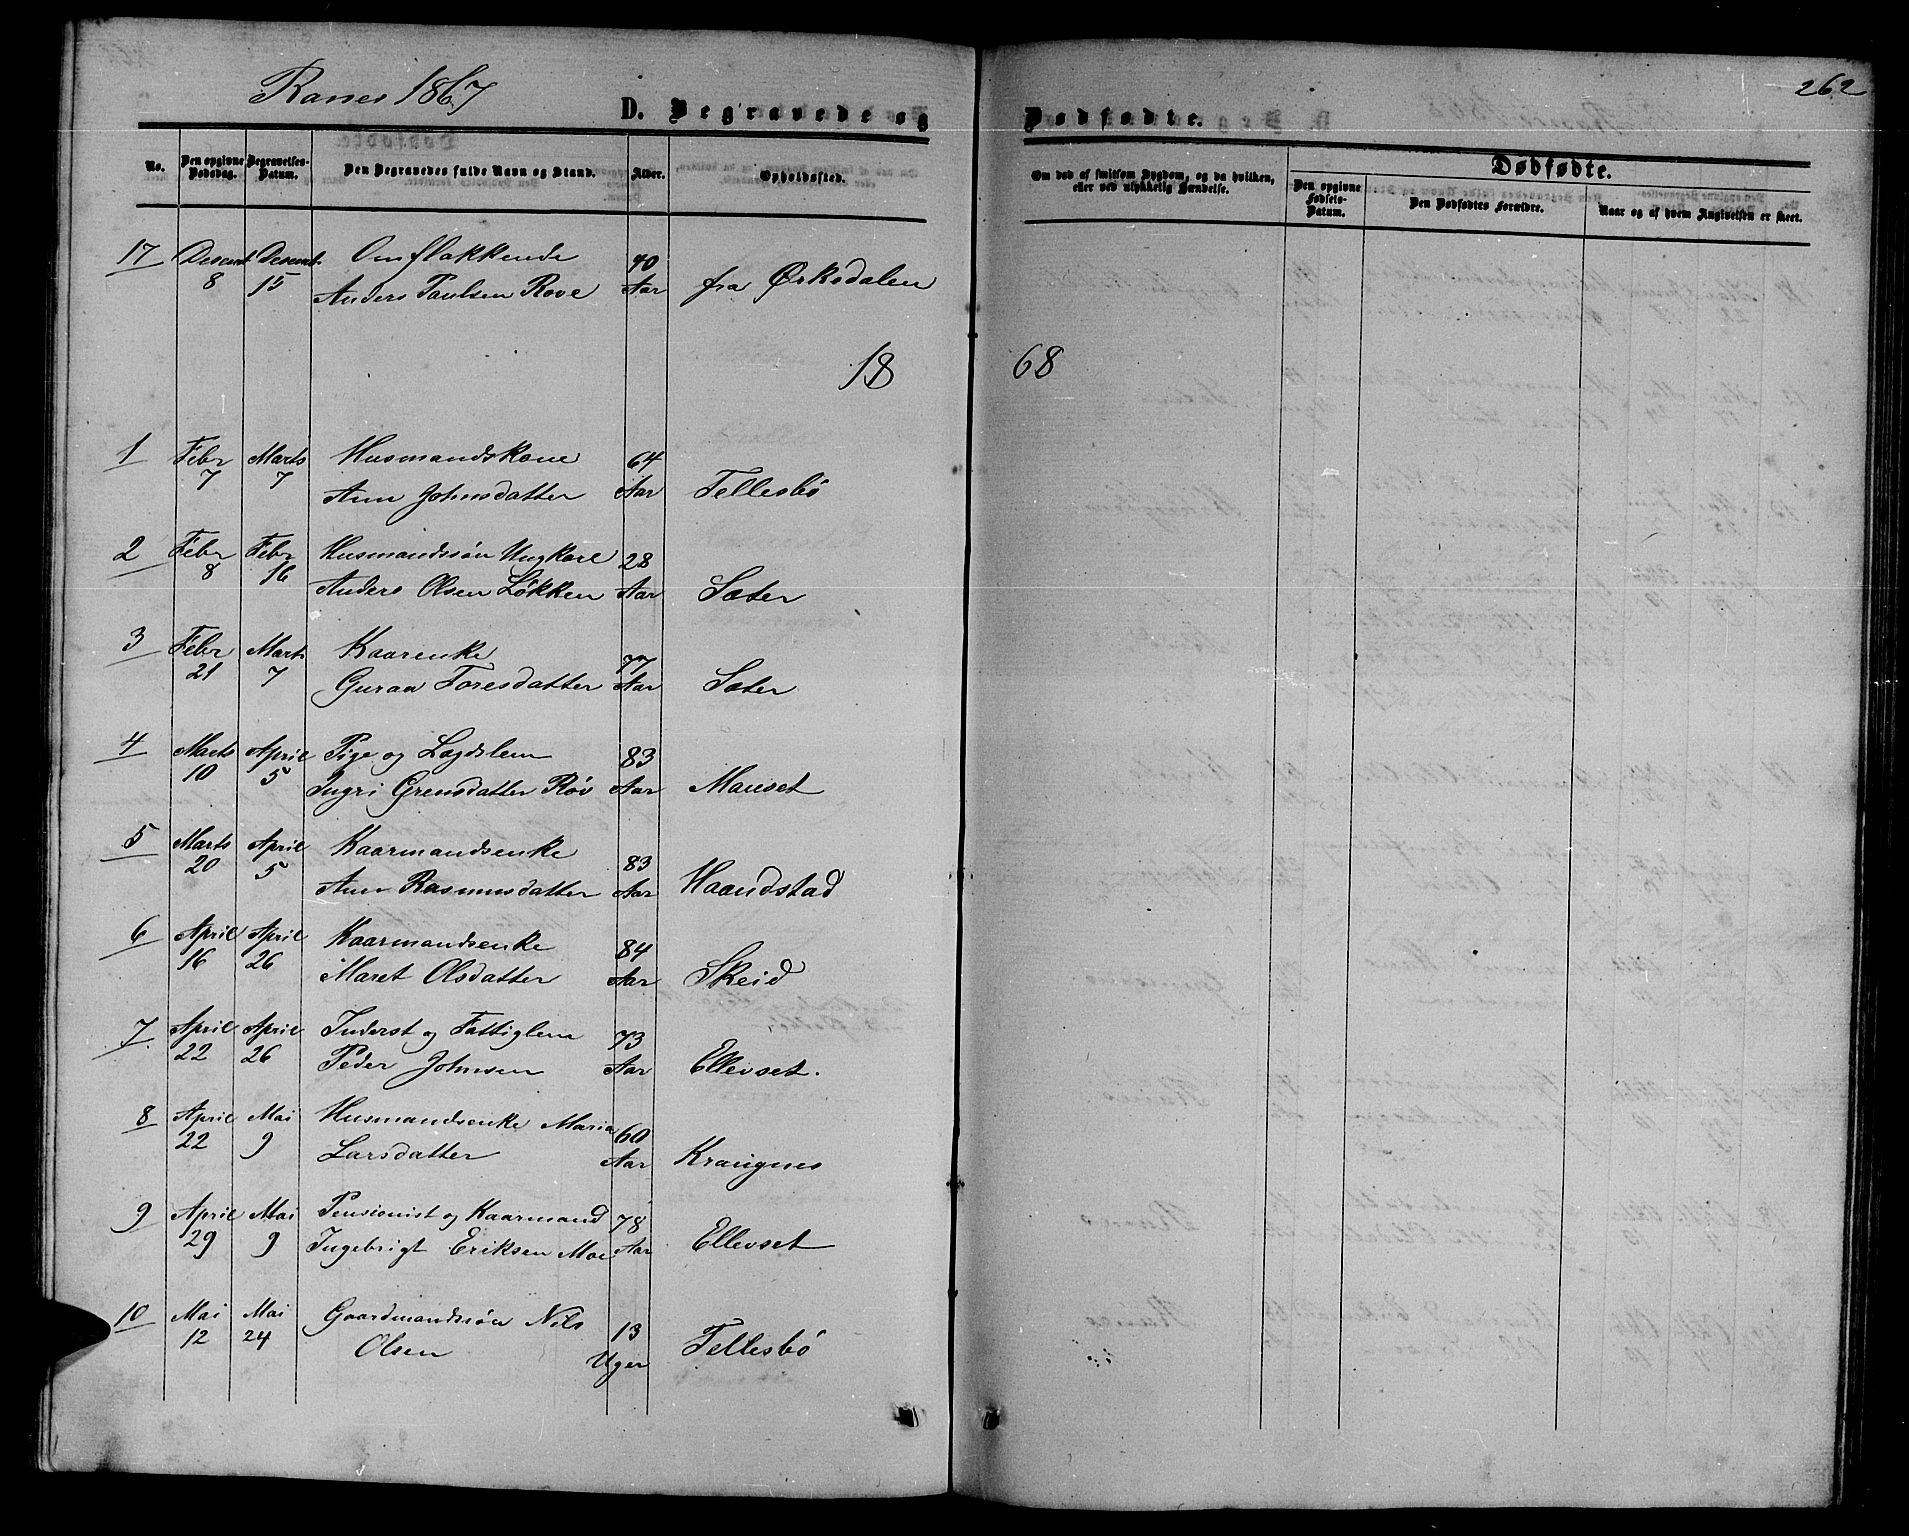 Ranes 1867
262
D. Begravede og
Dødfødte.
No.
Den opgivne Dødsdag.
Begravelses-Datum.
Den Begravedes fulde Navn og Stand.
Alder.
Opholdssted.
Om død af smitsom Sygdom, og da hvilken, eller ved ulykkelig Hændelse.
Dødfødte.
Den opgivne Fødsels-Datum.
Den Dødfødtes Forældre.
Naar og af hvem Angivelsen er skeet.
17 Decemb. Decemb. Omflakkende 40
8 15 Anders Paulsen Rove Aar fra Ørksdalen
18 68
1 Febr Marts Husmandskone 64
7 7 Ann Johnsdatter Aar Tellesbö
2 Febr Febr Husmandssön Ungkarl 28
8 16 Anders Olsen Lökken Aar Sæter
3 Febr Marts Kaarenke 77
21 7 Guraa Toresdatter Aar Sæter
4 Marts April Pige og Lægdslem 83
10 5 Ingri Grensdatter Röv Aar Mauset
5 Marts April Kaarmandsenke 83
20 5 Ann Rasmusdatter Aar Haandstad
6 April April Kaarmandsenke 84
16 26 Maret Olsdatter Aar Skeid
7 April April Inderst og Fattiglem 73
22 26 Peder Johnsen Aar Ellevset.
8 April Mai Husmandsenke Maria 60
22 9 Larsdatter Aar Kraugnes
9 April Mai Pensionist og Kaarmand 78
29 9 Ingebrigt Eriksen Moe Aar Ellevset
10 Mai Mai Gaardmandssön Nils 13
12 24 Olsen Uger Tellesbö